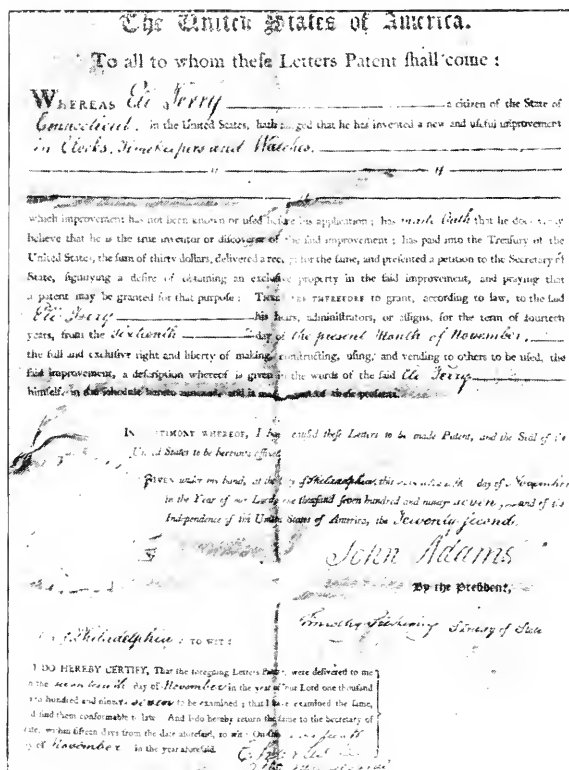 The United States of America.
To all to whom theſe Letters Patent ſhall come:
WHEREAS Eli Terry a citizen of the State of
Connecticut, in the United States, hath alleged that he has invented a new and uſeful improvement
in Clocks, Timekeepers and Watches.
" "
which improvement has not been known or uſed before his application; has made Oath that he does verily
believe that he is the true inventor or diſcoverer of the ſaid improvement; has paid into the Treaſury of the
United States, the ſum of thirty dollars, delivered a receipt for the ſame, and preſented a petition to the Secretary of
State, ſignifying a deſire of obtaining an excluſive property in the ſaid improvement, and praying that
a patent may be granted for that purpoſe: THESE ARE THEREFORE to grant, according to law, to the ſaid
Eli Terry his heirs, adminiſtrators, or aſſigns, for the term of fourteen
years, from the Sixteenth day of the present Month of November,
the full and excluſive right and liberty of making, conſtructing, uſing, and vending to others to be uſed, the
ſaid improvement, a deſcription whereof is given in the words of the ſaid Eli Terry
himſelf, in the ſchedule hereto annexed, and is made part of theſe preſents.
IN TESTIMONY WHEREOF, I have cauſed theſe Letters to be made Patent, and the Seal of the
United States to be hereunto affixed.
GIVEN under my hand, at the City of Philadelphia, this day of November
in the Year of our Lord, one thouſand ſeven hundred and ninety seven, and of the
Independence of the United States of America, the Twenty second.
John Adams
By the Preſident,
Timothy Pickering Secretary of State
City of Philadelphia, TO WIT:
I DO HEREBY CERTIFY, That the foregoing Letters Patent, were delivered to me
on the seventeenth day of November in the year of our Lord one thouſand
ſeven hundred and ninety seven to be examined; that I have examined the ſame,
and find them conformable to law. And I do hereby return the ſame to the Secretary of
State, within fifteen days from the date aforeſaid, to wit: On this
day of November in the year aforeſaid.